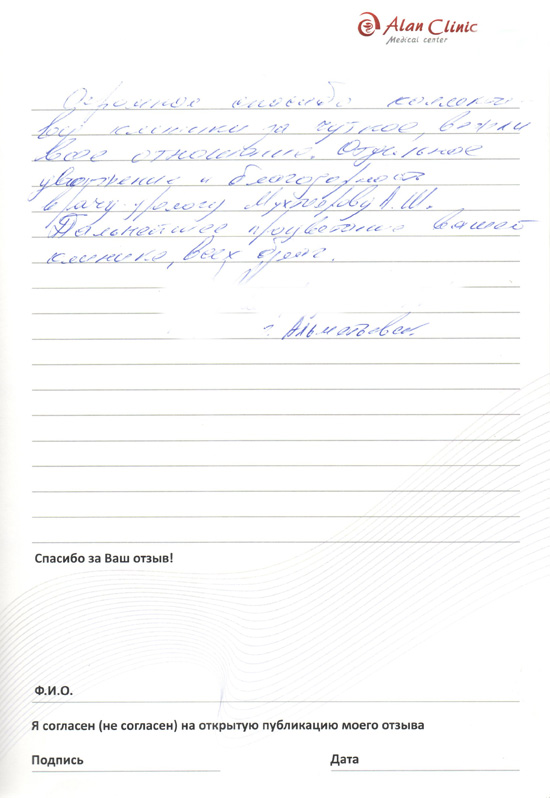 Alan Clinic
Medical center
Огромное спасибо коллекти-
ву клиники за чуткое, вежли
вое отношение. Отдельное
уважение и благодарность
врачу-урологу А.Ш.
Дальнейшее процветание вашей
клинике, всех благ.
г. Альметьевск.
Спасибо за Ваш отзыв!
Ф.И.О.
Я согласен (не согласен) на открытую публикацию моего отзыва
Подпись Дата